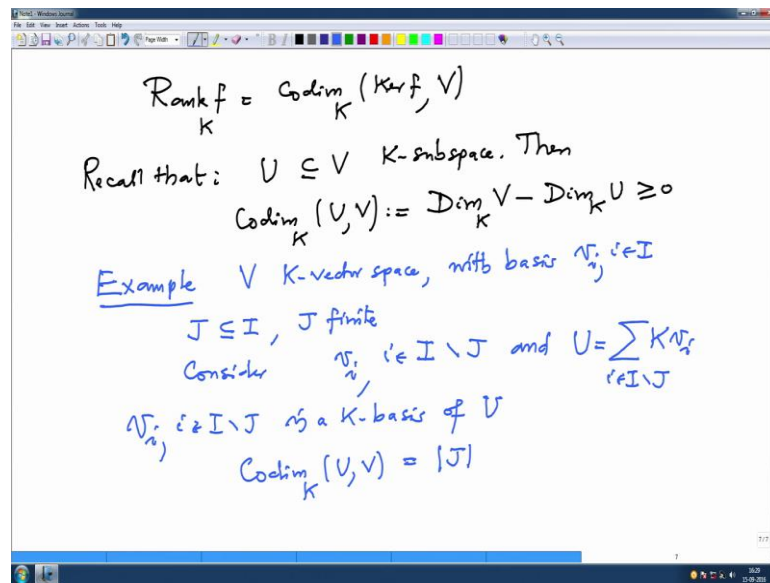 Note1 - Windows Journal
File Edit View Insert Actions Tools Help
Page Width
Rank_K f = Codim_K (Ker f, V)
Recall that: U ⊆ V K-subspace. Then
Codim_K (U, V) := Dim_K V − Dim_K U ≥ 0
Example V K-vector space, with basis v_i, i∈I
J ⊆ I, J finite
Consider v_i, i∈I∖J and U = ∑_{i∈I∖J} K v_i
v_i, i∈I∖J is a K-basis of U
Codim_K (U, V) = |J|
7/7
7
16:29
15-09-2016